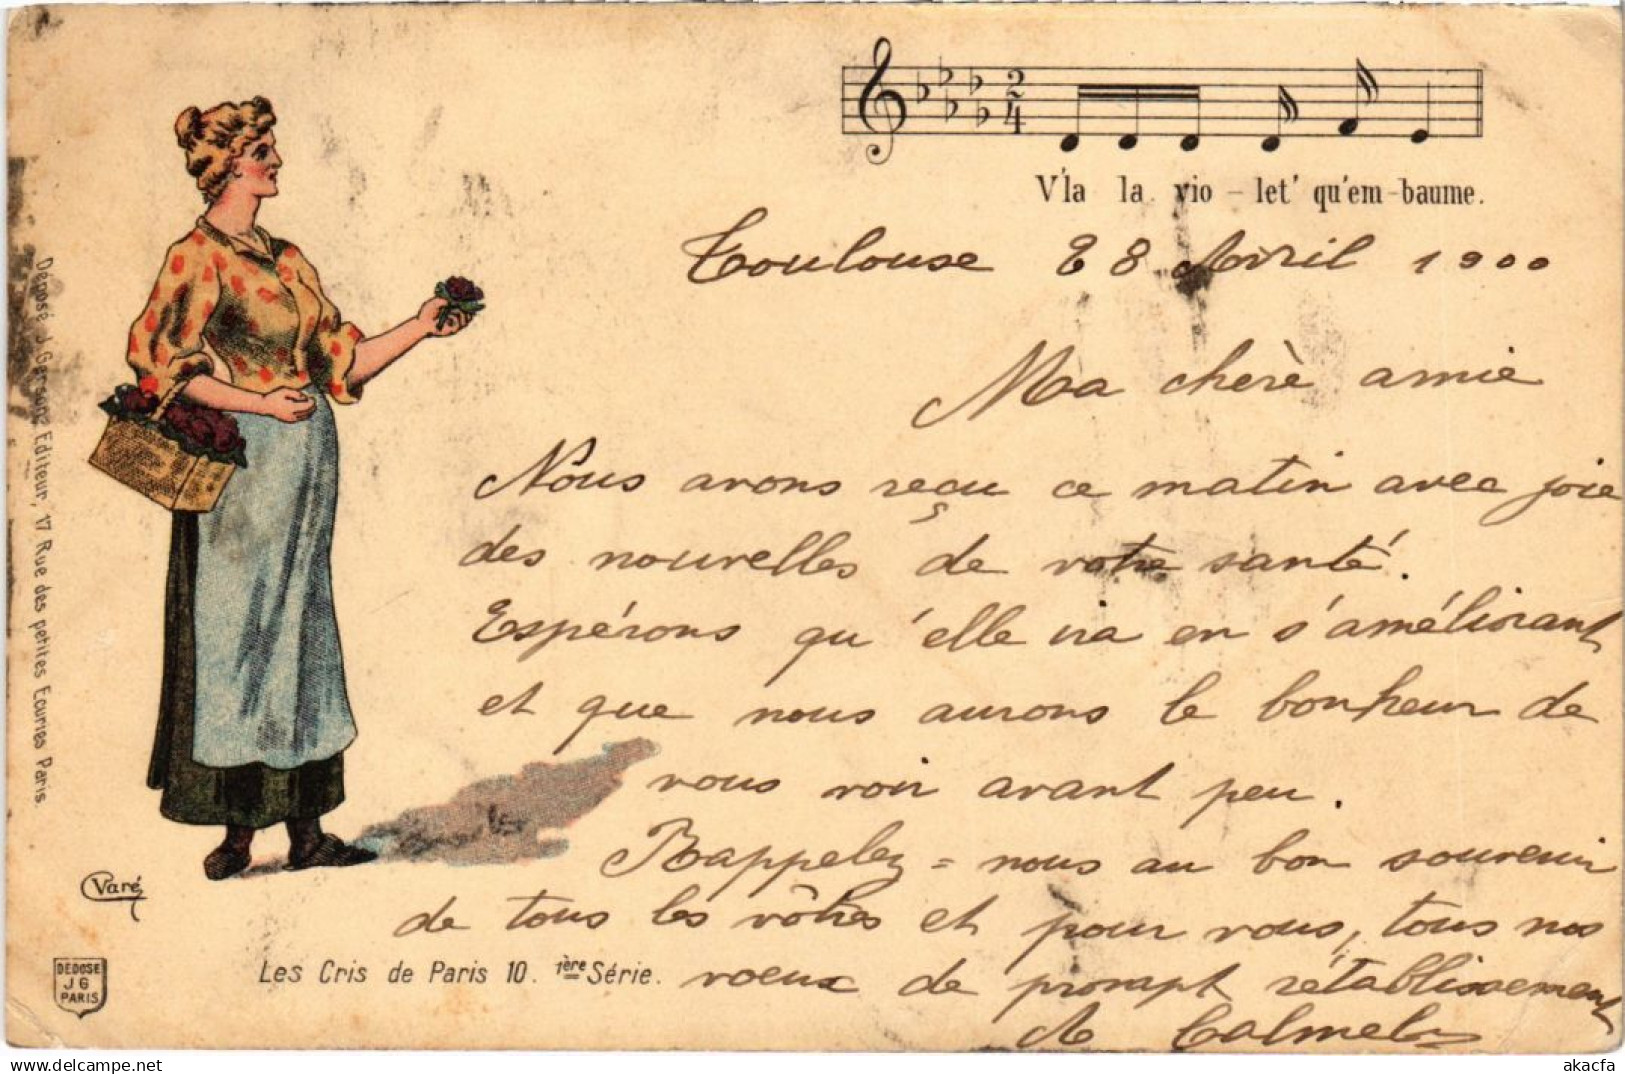 V'la la vio - let' qu'em - baume.
Toulouse 28 Avril 1900
Ma chère amie
Nous avons reçu ce matin avec joie
des nouvelles de votre santé.
Espérons qu'elle ira en s'améliorant
et que nous aurons le bonheur de
vous voir avant peu.
Rappelez = nous au bon souvenir
de tous les vôtres et pour vous, tous nos
voeux de prompt rétablissement
Calmels
Déposé J. Gerson, Editeur, 17 Rue des petites Ecuries Paris.
Varé
DEPOSE
J G
PARIS
Les Cris de Paris 10. 1ère Série.
akacfa
delcampe.net